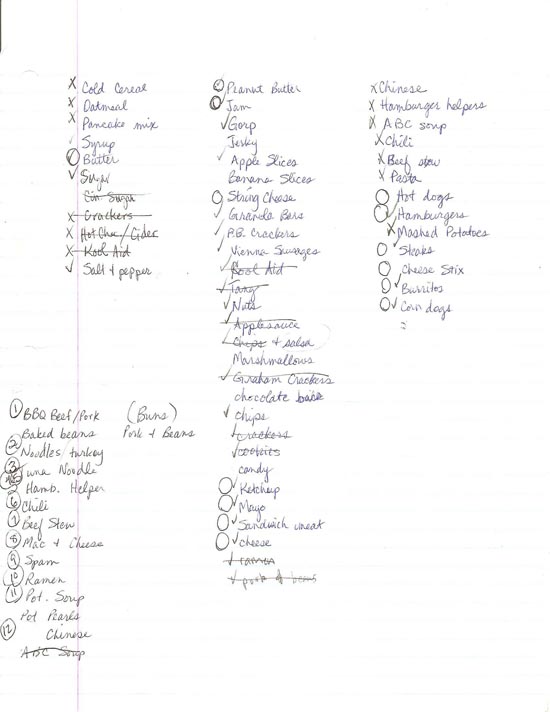 X Cold Cereal
X Oatmeal
X Pancake mix
✓ Syrup
O Butter
✓ Sugar
Cin Sugar
X Crackers
X Hot Choc/Cider
X Kool Aid
✓ Salt + pepper
O Peanut Butter
O Jam
✓ Gorp
Jerky
✓ Apple Slices
Banana Slices
O String Cheese
✓ Granola Bars
✓ P.B. Crackers
✓ Vienna Sausages
✓ Kool Aid
✓ Tang
✓ Nuts
✓ Applesauce
✓ Chips + salsa
Marshmallows
✓ Graham Crackers
chocolate
✓ Chips
✓ crackers
✓ cookies
candy
O ✓ Ketchup
O ✓ Mayo
O ✓ Sandwich meat
O ✓ cheese
✓ ramen
✓ pork & beans
X Chinese
X Hamburger helpers
X ABC soup
X Chili
X Beef stew
X Pasta
O Hot dogs
O ✓ Hamburgers
X Mashed Potatoes
O Steaks
O Cheese Stix
O ✓ Burritos
O ✓ Corn dogs
1 BBQ Beef/Pork (Buns)
Baked beans Pork + Beans
2 Noodles/turkey
3 Tuna Noodle
Hamb. Helper
6 Chili
7 Beef Stew
8 Mac + Cheese
9 Spam
10 Ramen
11 Pot. Soup
Pot Pearls
12 Chinese
ABC Soup